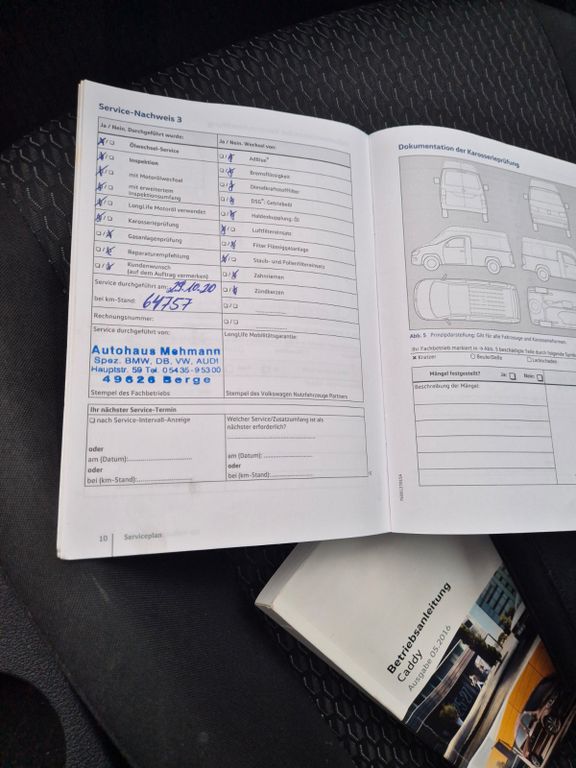 Service-Nachweis 3
Ja / Nein. Durchgeführt wurde:
Ölwechsel-Service
Inspektion
mit Motorölwechsel
mit erweitertem
Inspektionsumfang
LongLife Motoröl verwendet
Karosserieprüfung
Gasanlagenprüfung
Reparaturempfehlung
Kundenwunsch
(auf dem Auftrag vermerken)
Service durchgeführt am: 29.10.20
bei km-Stand: 64757
Rechnungsnummer:
Service durchgeführt von:
Autohaus Mehmann
Spez. BMW, DB, VW, AUDI
Hauptstr. 59 Tel 05435-95300
49626 Berge
Stempel des Fachbetriebs
Ja / Nein. Wechsel von:
AdBlue®
Bremsflüssigkeit
Dieselkraftstofffilter
DSG®: Getriebeöl
Haldexkupplung: Öl
Luftfiltereinsatz
Filter Flüssiggasanlage
Staub- und Pollenfiltereinsatz
Zahnriemen
Zündkerzen
LongLife Mobilitätsgarantie:
Stempel des Volkswagen Nutzfahrzeuge Partners
Ihr nächster Service-Termin
nach Service-Intervall-Anzeige
oder
am (Datum):
oder
bei (km-Stand):
Welcher Service/Zusatzumfang ist als
nächster erforderlich?
am (Datum):
oder
bei (km-Stand):
10 Serviceplan
Dokumentation der Karosserieprüfung
Abb. 5 Prinzipdarstellung: Gilt für alle Fahrzeuge und Karosserieformen.
Ihr Fachbetrieb markiert in → Abb. 5 beschädigte Teile durch folgende Symbole
Kratzer
Beule/Delle
Lackschaden
Mängel festgestellt? Ja: Nein:
Beschreibung der Mängel:
Betriebsanleitung
Caddy
Ausgabe 05.2016